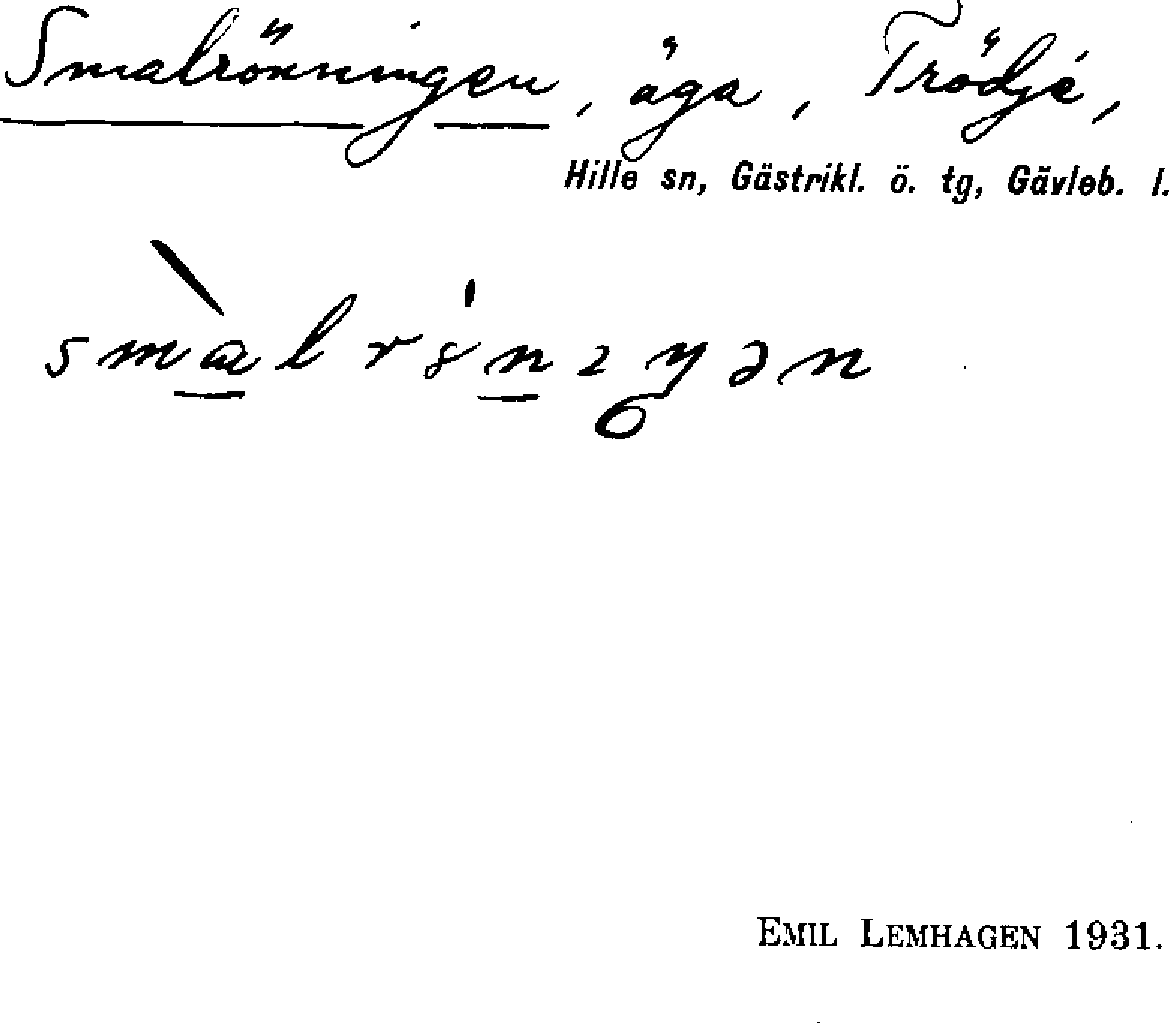 Smalrönningen, äga, Trödje,
Hille sn, Gästrikl. ö. tg, Gävleb. l.
EMIL LEMHAGEN 1931.